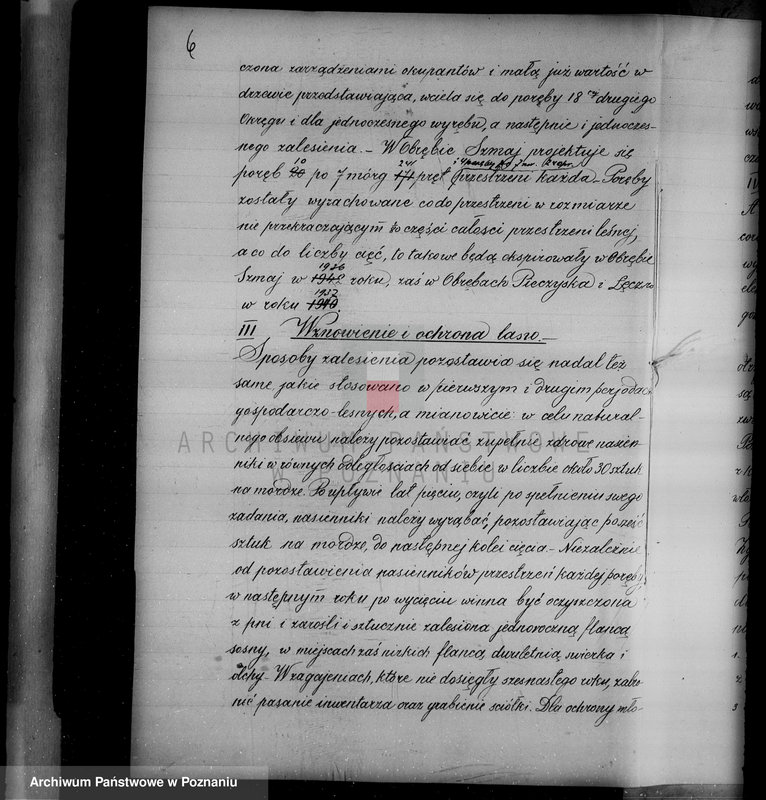 6
czona zarządzeniami okupantów i małą już wartość w
drzewie przedstawiająca, wciela się do poręby 18 ej drugiego
Okręgu i dla jednoczesnego wyrębu, a następnie i jednoczes-
nego zalesienia. – W Obrębie Szmaj projektuje się
poręb 10 po 7 mórg 241 pręt przestrzeni każda – Poręby
zostały wyrachowane co do przestrzeni w rozmiarze
nie przekraczającym części całości przestrzeni leśnej,
a co do liczby cięć, to takowe będą ekspirowały w Obrębie
Szmaj w 1926 roku, zaś w Obrębach Pieczyska i
w roku 1937
III Wznowienie i ochrona lasu. –
Sposoby zalesienia pozostawia się nadal też
same jakie stosowano w pierwszym i drugim perjodac
gospodarczo-leśnych, a mianowicie: w celu natural-
nego obsiewu należy pozostawiać zupełnie zdrowe nasien
niki w równych odległościach od siebie w liczbie około 30 sztuk
na mordze. Po upływie lat pięciu, czyli po spełnieniu swego
zadania, nasienniki należy wyrąbać, pozostawiając po sześć
sztuk na mordze, do następnej kolei cięcia – Niezależnie
od pozostawienia nasienników przestrzeń każdej poręby
w następnym roku po wycięciu winna być oczyszczona
z pni i zarośli i sztucznie zalesiona jednoroczną flancą
sosny, w miejscach zaś nizkich flancą dwuletnią świerka i
olchy – W zagajeniach, które nie dosięgły szesnastego roku, zabro
nić pasanie inwentarza oraz grabienie sciółki. Dla ochrony mło-
ARCHIWUM PAŃSTWOWE
W POZNANIU
Archiwum Państwowe w Poznaniu